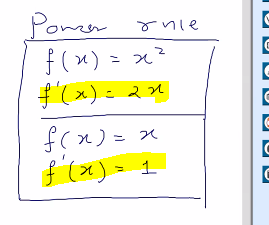 Power rule
f(x) = x²
f'(x) = 2x
f(x) = x
f'(x) = 1